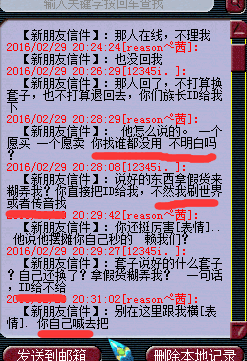 输入关键字按回车查找
【新朋友信件】：那人在线，不理我
2016/02/29 20:24:24[reasonぺ茜]:
【新朋友信件】：也没回我
2016/02/29 20:26:29[12345i。]:
【新朋友信件】：那人回了，不打算换
套子，也不打算退回去，你们放长ID给我
下
2016/02/29 20:28:29[reasonぺ茜]:
【新朋友信件】： 他怎么说的。 一个
愿买 一个愿卖 你找谁都没用 不明白吗
？
2016/02/29 20:28:08[12345i。]:
【新朋友信件】：说好的东西拿假货来
糊弄我？你直接把ID给我，不然我刷世界
或者传音找
2016/02/29 20:29:42[reasonぺ茜]:
【新朋友信件】：你还挺厉害[表情]..
他说他摆摊你自己秒的 赖我们?
2016/02/29 20:29:27[12345i。]:
【新朋友信件】：套子说好的什么套子
？自己还换了？拿假货糊弄我？ 一句话
，ID给不给
2016/02/29 20:31:02[reasonぺ茜]:
【新朋友信件】：别在这里跟我横[表
情]. 你自己喊去把
发送到邮箱
删除本地记录